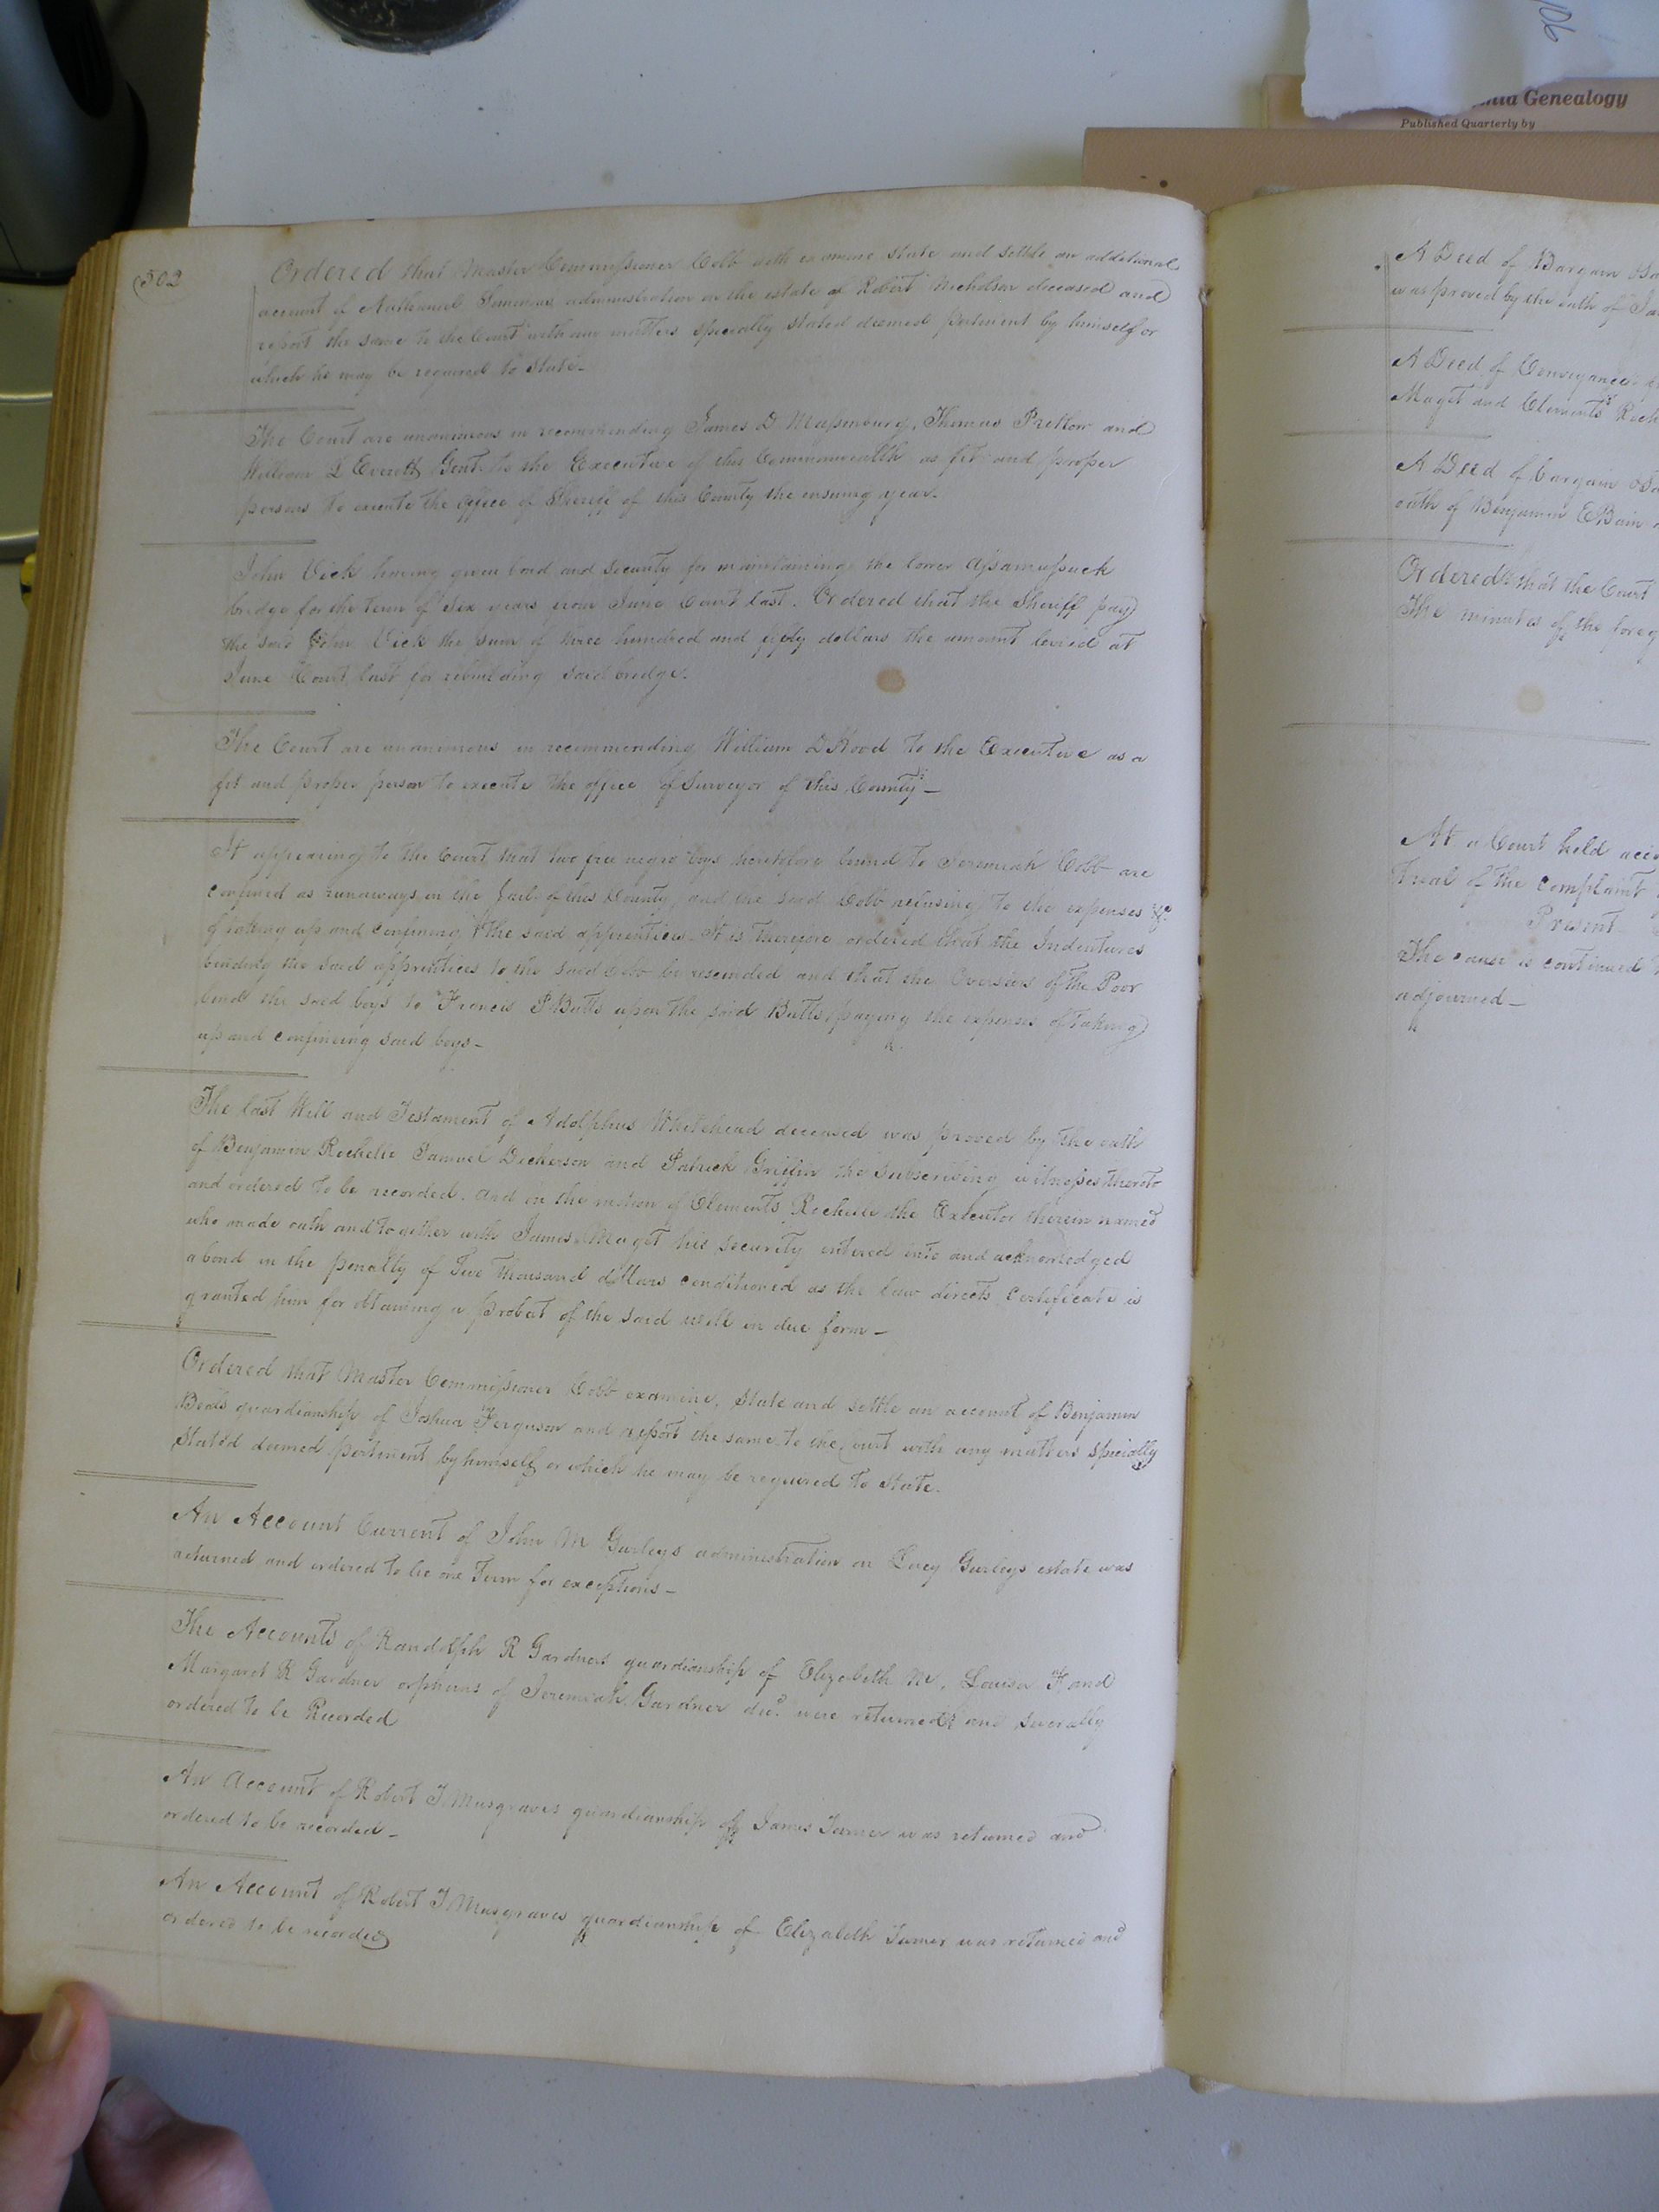 06
nia Genealogy
Published Quarterly by
502
Ordered that Master Commissioner Cobb doth examine state and settle an additional
account of Nathaniel Simmons administration on the estate of Robert Nicholson deceased and
report the same to the Court with any matters specially stated deemed pertinent by himself or
which he may be required to state-
The Court are unanimous in recommending James D Massenburg, Thomas Pretlow and
William D Everett Gent. to the Executive of this Commonwealth as fit and proper
persons to execute the office of Sheriff of this County the ensuing year.
John Vick having given bond and security for maintaining the lower Assamussuck
bridge for the term of Six years from June Court last. Ordered that the Sheriff pay
the said John Vick the sum of three hundred and fifty dollars the amount levied at
June Court last for rebuilding said bridge.
The Court are unanimous in recommending William D Hood to the Executive as a
fit and proper person to execute the office of Surveyor of this County-
It appearing to the Court that two free negro boys heretofore bound to Jeremiah Cobb are
confined as runaways in the Jail of this County, and the said Cobb refusing to the expenses &c
of taking up and confining the said apprentices. It is therefore ordered that the Indentures
binding the said apprentices to the said Cobb be rescinded and that the Overseers of the Poor
bind the said boys to Francis P Butts upon the said Butts paying the expenses of taking
up and confining said boys-
The last Will and Testament of Adolphus Whitehead deceased was proved by the oath
of Benjamin Rochelle Samuel Dickerson and Patrick Griffin the subscribing witnesses thereto
and ordered to be recorded. And on the motion of Clements Rochelle the Executor therein named
who made oath and together with James Maget his security entered into and acknowledged
a bond in the penalty of Five thousand dollars conditioned as the law directs certificate is
granted him for obtaining a probat of the said will in due form-
Ordered that Master Commissioner Cobb examine, state and settle an account of Benjamin
Beals guardianship of Joshua Ferguson and report the same to the Court with any matters specially
stated deemed pertinent by himself or which he may be required to state.
An Account Current of John M Gurleys administration on Lucy Gurleys estate was
returned and ordered to lie one Term for exceptions-
The Accounts of Randolph R Gardners guardianship of Elizabeth M, Louisa F and
Margaret R Gardner orphans of Jeremiah Gardner decd. were returned and severally
ordered to be Recorded
An Account of Robert T Musgraves guardianship of James Turner was returned and
ordered to be recorded-
An Account of Robert T Musgraves guardianship of Elizabeth Turner was returned and
ordered to be recorded
A Deed of Bargain
was proved by the oath of
A Deed of Conveyance
Maget and Clements Roch
A Deed of bargain
oath of Benjamin E Bain
Ordered that the Court
The minutes of the foreg
At a Court held
trial of the complaint
Present
The cause is continued
adjourned-